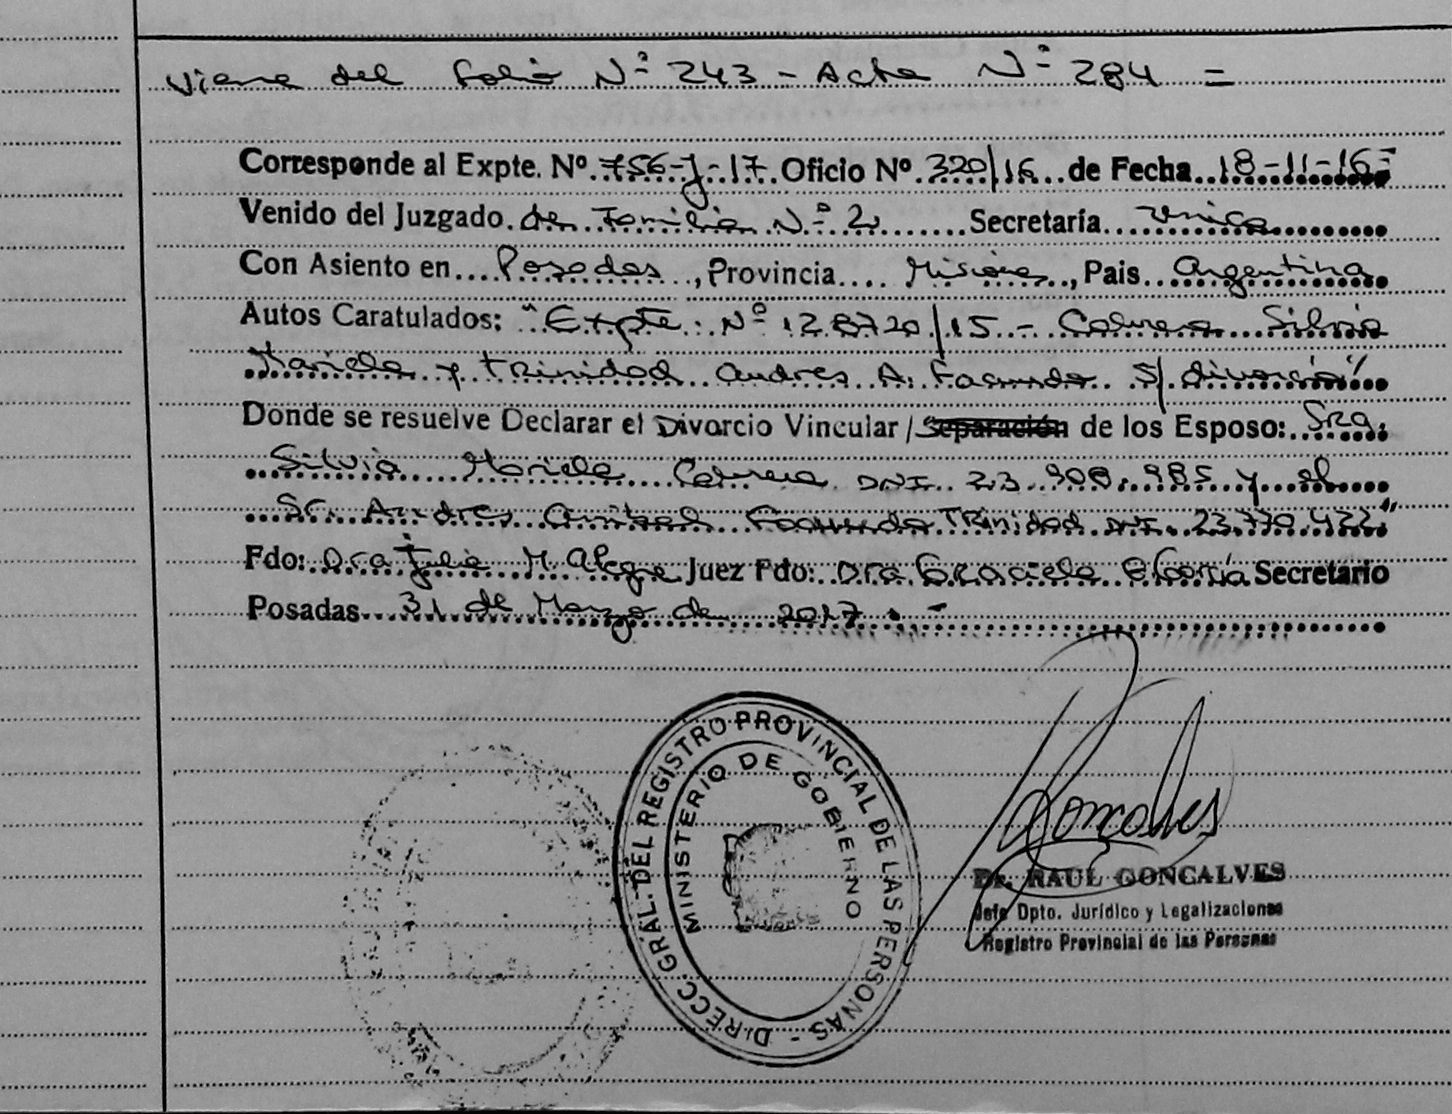 Viene del Folio Nº 243 - Acta Nº 284 =
Corresponde al Expte. Nº 756-J-17 Oficio Nº 320/16 de Fecha 18-11-16-
Venido del Juzgado de Familia Nº 2 Secretaría Unica
Con Asiento en Posadas, Provincia Misiones, Pais Argentina
Autos Caratulados: "Expte. Nº 128720/15 - Cabrera Silvia
Mariela y Trinidad Andres A. Facundo S/ divorcio"
Donde se resuelve Declarar el Divorcio Vincular / Separación de los Esposo: Sra.
Silvia Mariela Cabrera DNI 23.908.985 y el
Sr. Andres Anibal Facundo Trinidad DNI. 23.770.422"
Fdo: Dra Julia M. Alegre Juez Fdo: Dra Graciela Secretario
Posadas 31 de Marzo de 2017.-
DIRECC. GRAL. DEL REGISTRO PROVINCIAL DE LAS PERSONAS -
MINISTERIO DE GOBIERNO
Goncalves
Dr. RAUL GONCALVES
Jefe Dpto. Jurídico y Legalizaciones
Registro Provincial de las Personas